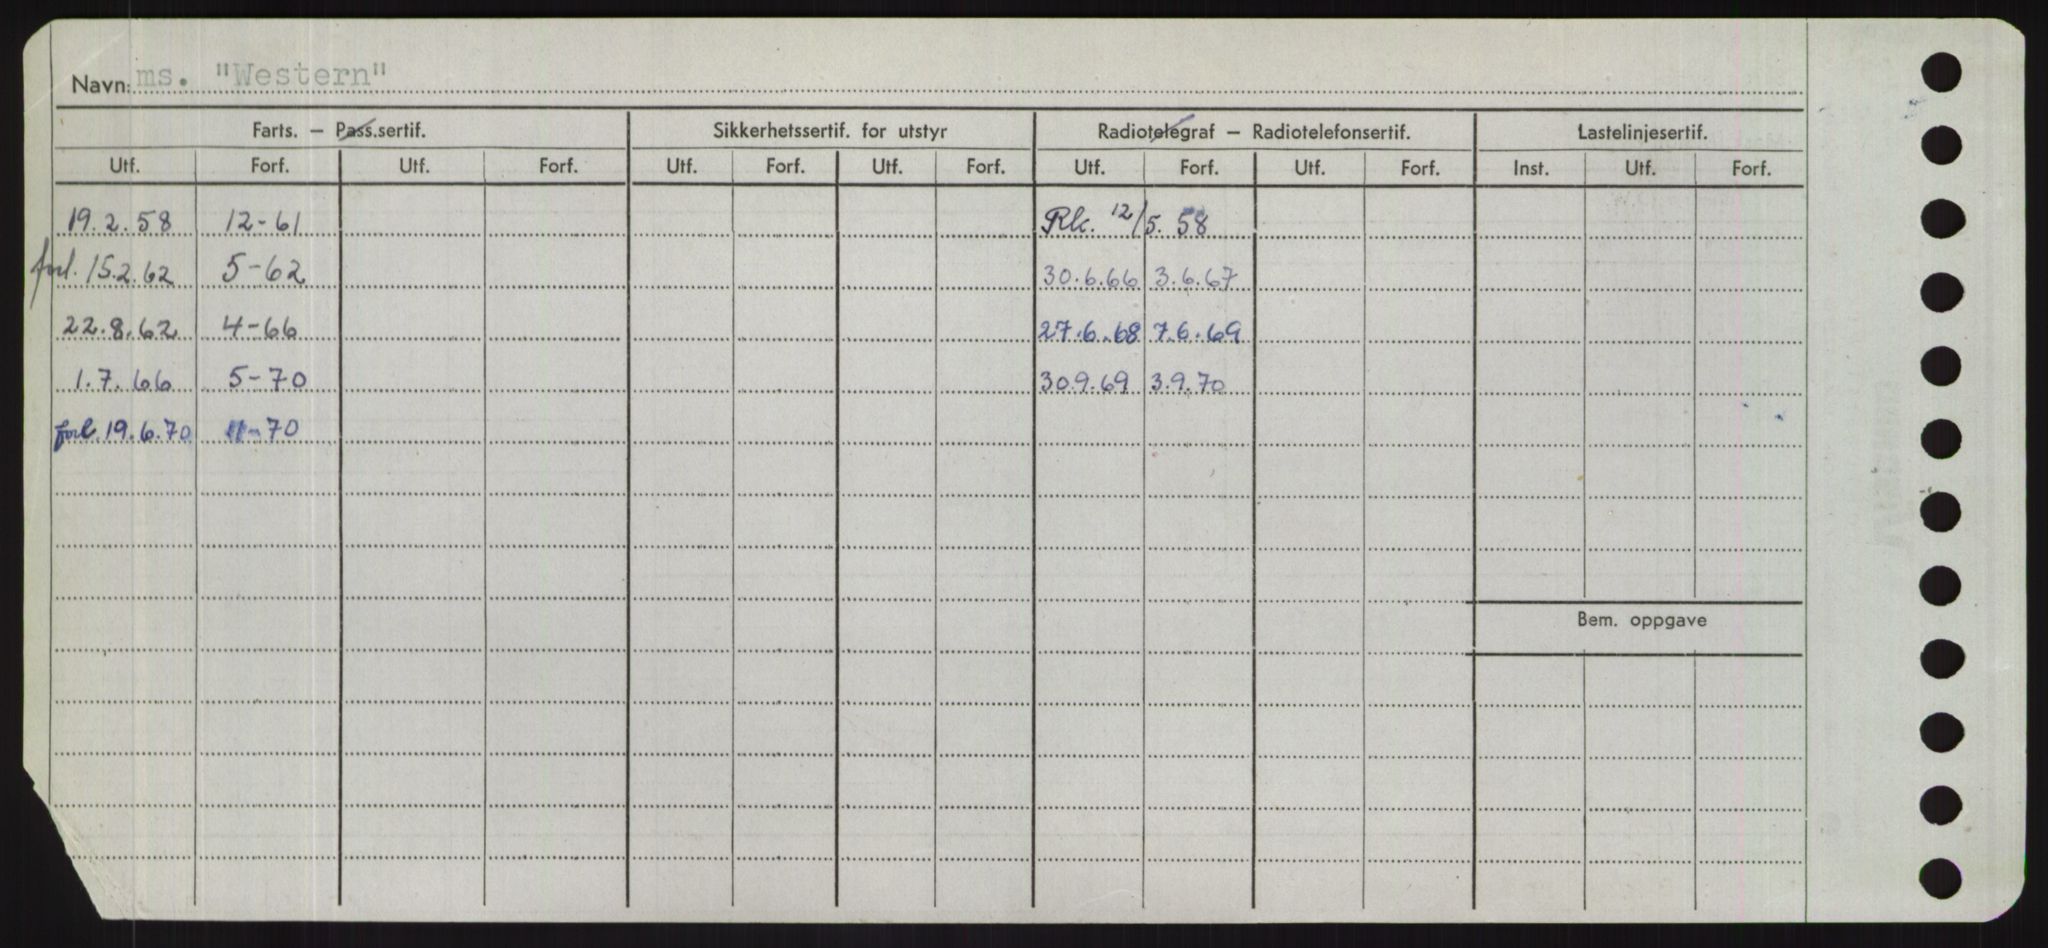 Navn: ms. "Western"
Farts. – Pass.sertif. Sikkerhetssertif. for utstyr Radiotelegraf – Radiotelefonsertif. Lastelinjesertif.
Utf. Forf. Utf. Forf. Utf. Forf. Utf. Forf. Utf. Forf. Utf. Forf. Inst. Utf. Forf.
19.2.58 12-61 Rk. 12/5.58
forl. 15.2.62 5-62 30.6.66 3.6.67
22.8.62 4-66 27.6.68 7.6.69
1.7.66 5-70 30.9.69 3.9.70
forl. 19.6.70 11-70
Bem. oppgave